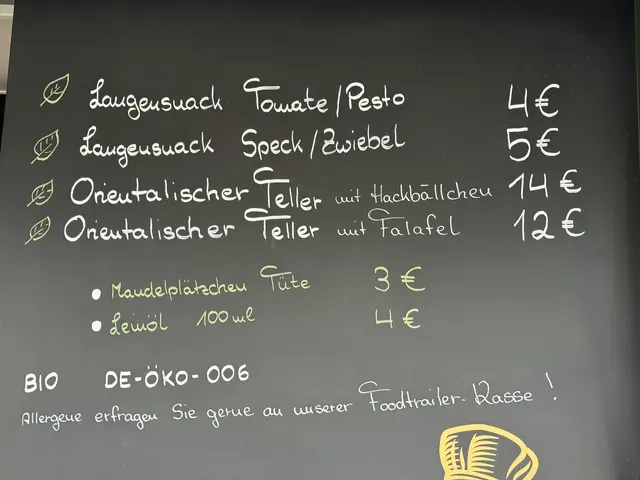 Laugensnack Tomate/Pesto 4€
Laugensnack Speck/Zwiebel 5€
Orientalischer Teller mit Hackbällchen 14€
Orientalischer Teller mit Falafel 12€
• Mandelplätzchen Tüte 3€
• Leinöl 100ml 4€
BIO DE-ÖKO-006
Allergene erfragen Sie gerne an unserer Foodtrailer-Kasse!